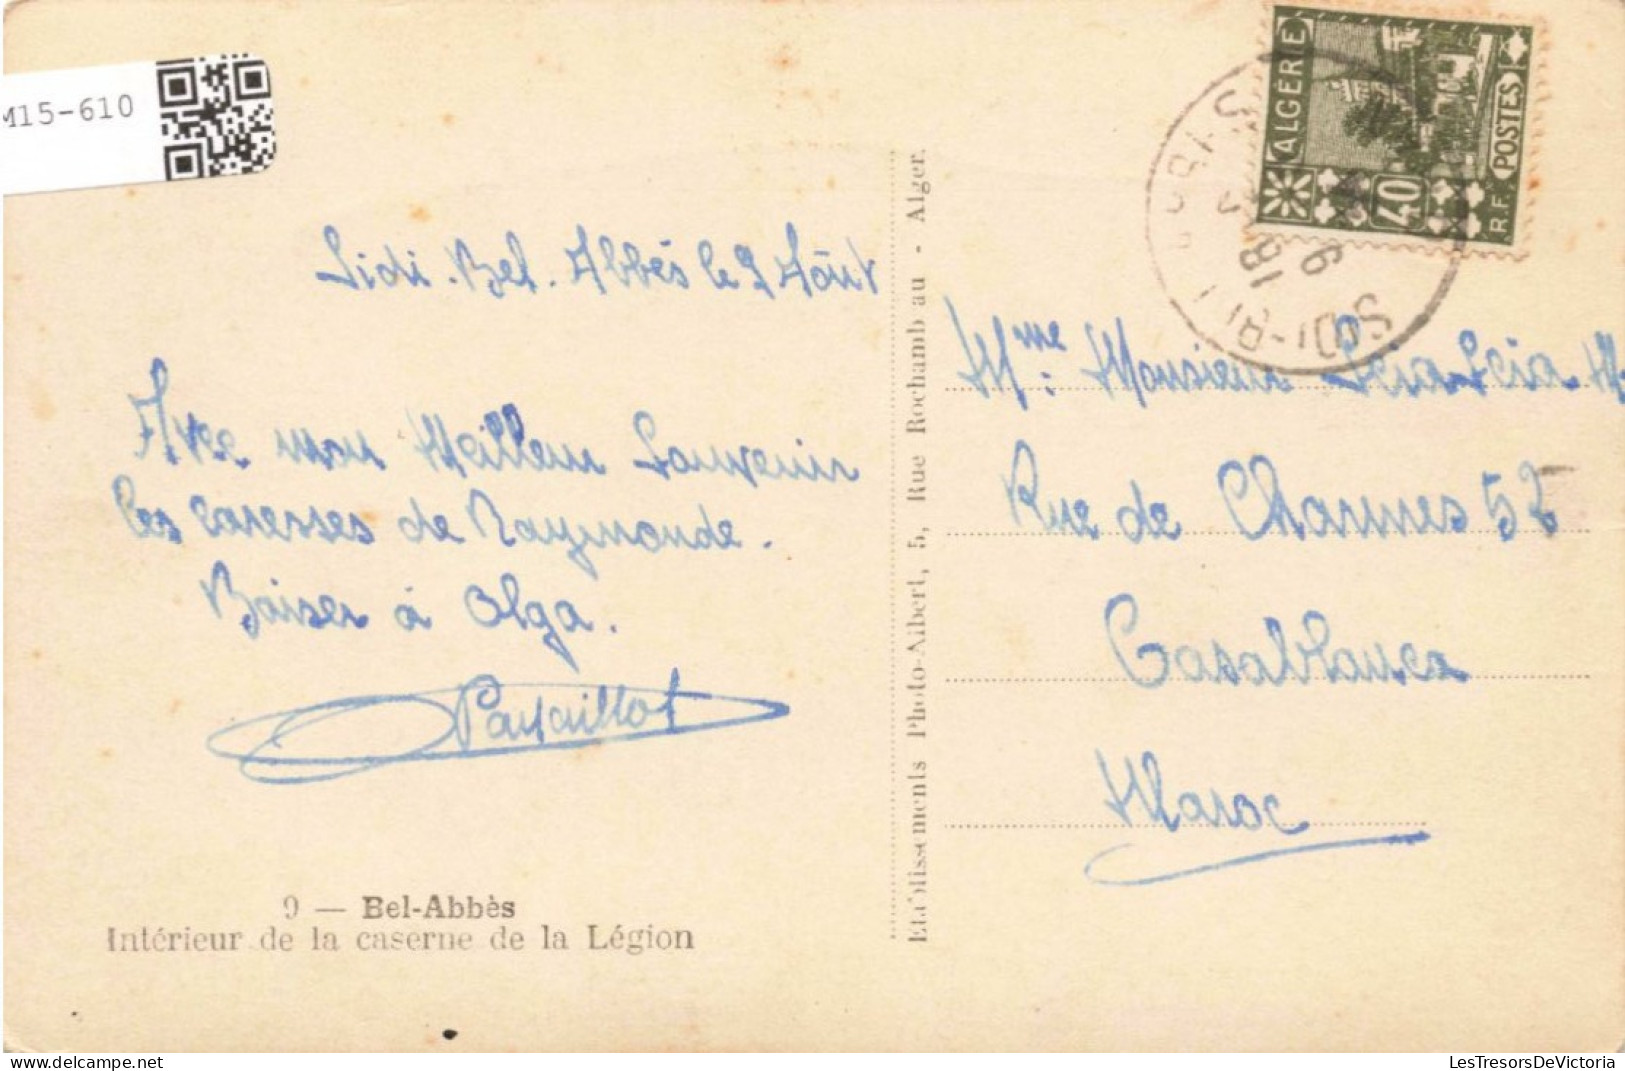 M15-610
ALGÉRIE
POSTES
R.F.
40
SIDI-BEL
18
9
Sidi-Bel-Abbès le 9 Août
Avec mon Meilleur Souvenir
les caresses de Raymonde.
Baiser à Olga.
9 — Bel-Abbès
Intérieur de la caserne de la Légion
Etablissements Photo-Albert, 5, Rue Rochambau - Alger.
Mme. Monsieur
Rue de Charmes 52
Casablanca
Maroc
LesTresorsDeVictoria